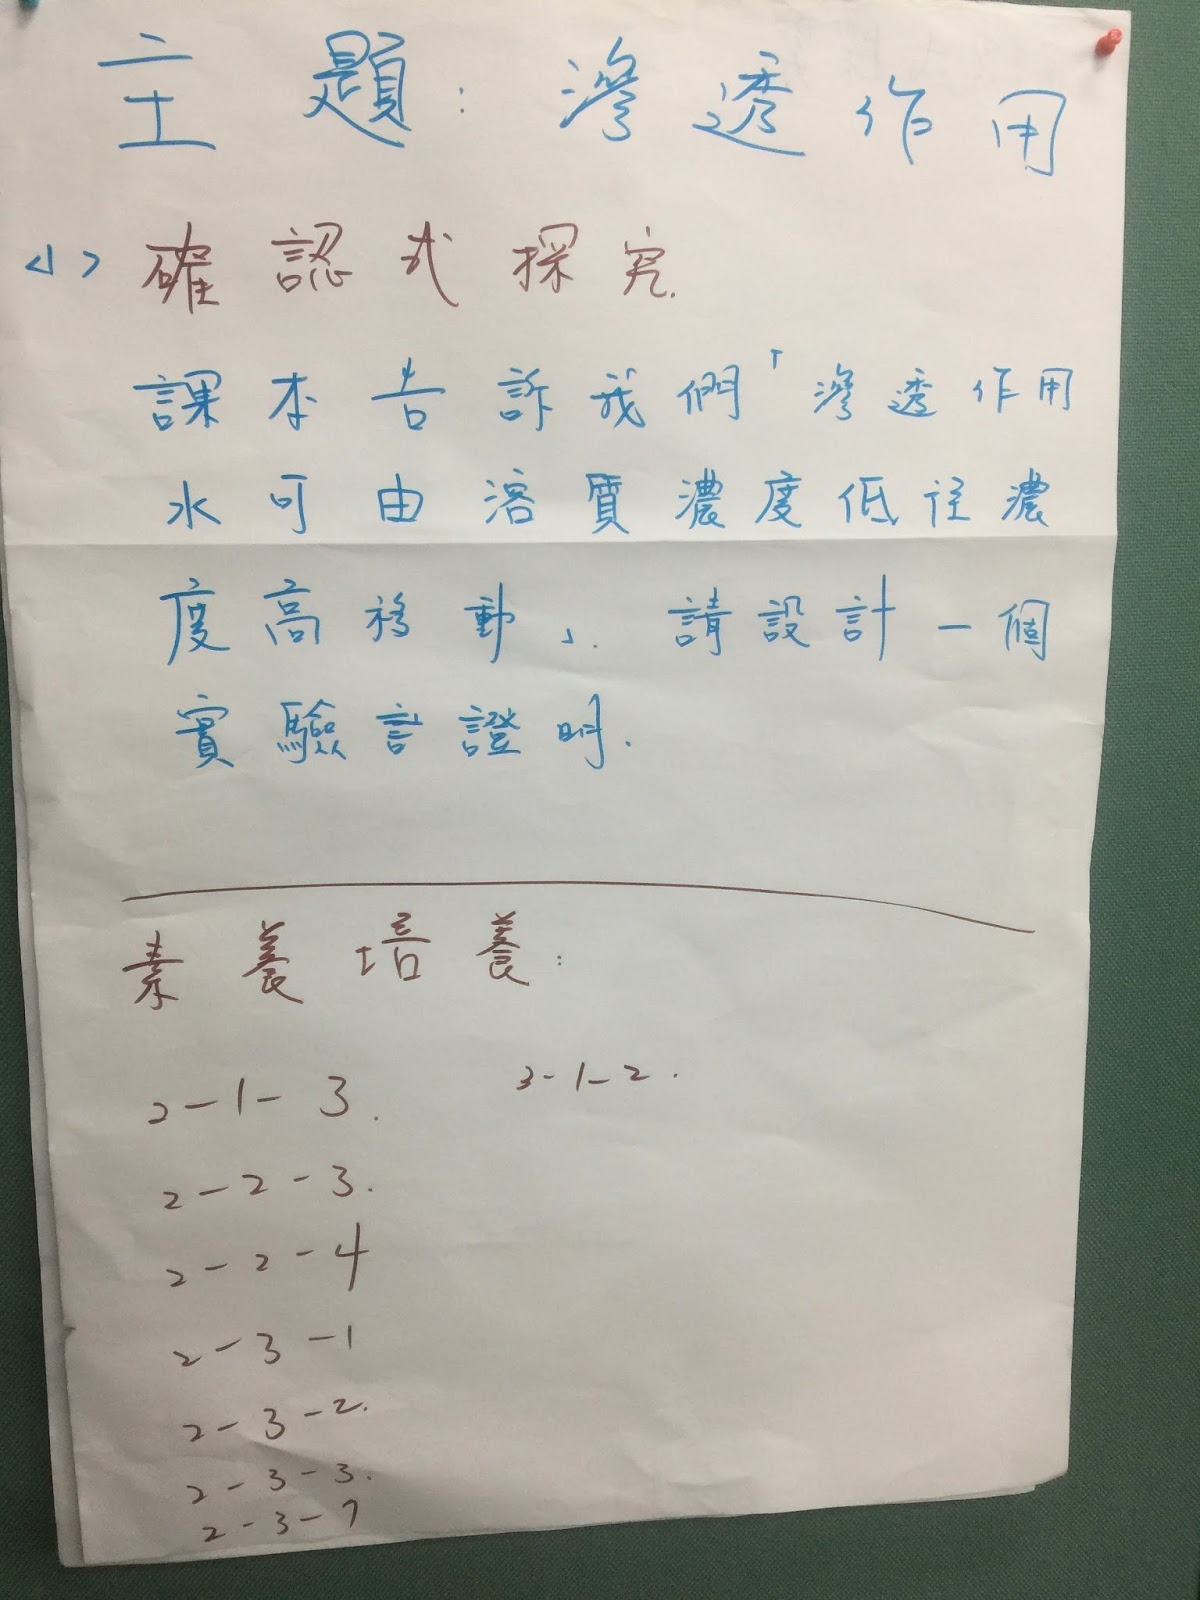 主題:滲透作用
<1> 確認式探究.
課本告訴我們「滲透作用
水可由溶質濃度低往濃
度高移動」. 請設計一個
實驗言證明.
素養培養:
2-1-3. 3-1-2.
2-2-3.
2-2-4
2-3-1
2-3-2.
2-3-3.
2-3-7